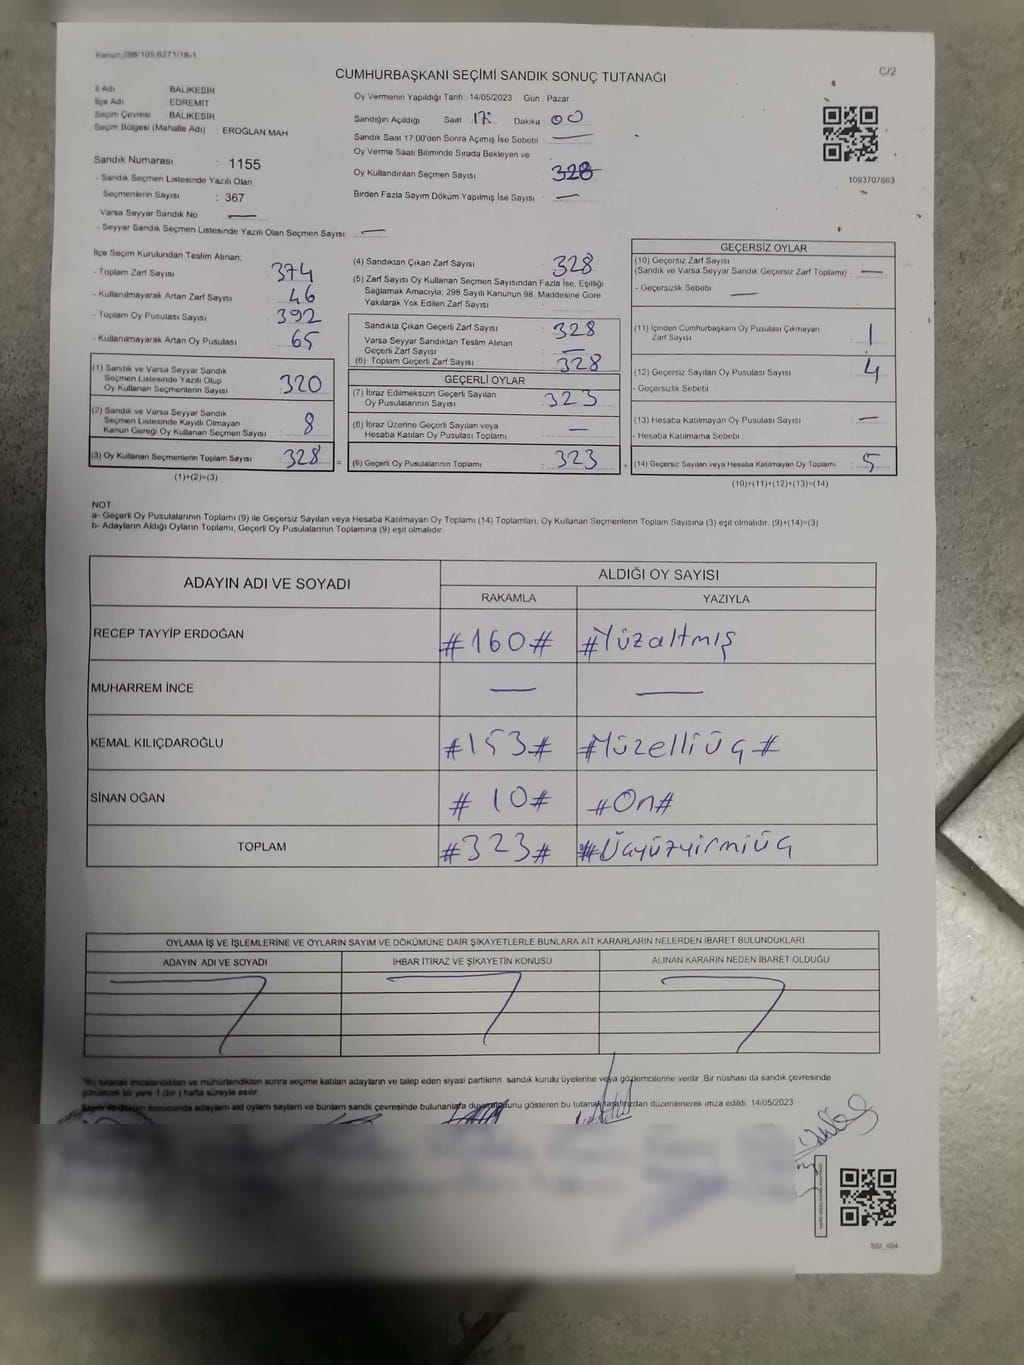 Kanun:298/105;6271/18-1
C/2
CUMHURBAŞKANI SEÇİMİ SANDIK SONUÇ TUTANAĞI
İl Adı BALIKESİR
İlçe Adı EDREMİT
Seçim Çevresi BALIKESİR
Seçim Bölgesi (Mahalle Adı) EROĞLAN MAH
Sandık Numarası : 1155
- Sandık Seçmen Listesinde Yazılı Olan
Seçmenlerin Sayısı : 367
Varsa Seyyar Sandık No —
- Seyyar Sandık Seçmen Listesinde Yazılı Olan Seçmen Sayısı: —
Oy Vermenin Yapıldığı Tarih : 14/05/2023 Gün : Pazar
Sandığın Açıldığı Saat 17: Dakika : 00
Sandık Saat 17:00'den Sonra Açımış İse Sebebi : —
Oy Verme Saati Bitiminde Sırada Bekleyen ve
Oy Kullandırılan Seçmen Sayısı : 328
Birden Fazla Sayım Döküm Yapılmış İse Sayısı : —
1093707663
İlçe Seçim Kurulundan Teslim Alınan;
- Toplam Zarf Sayısı : 374
- Kullanılmayarak Artan Zarf Sayısı : 46
- Toplam Oy Pusulası Sayısı : 392
- Kullanılmayarak Artan Oy Pusulası : 65
(1) Sandık ve Varsa Seyyar Sandık
Seçmen Listesinde Yazılı Olup
Oy Kullanan Seçmenlerin Sayısı : 320
(2) Sandık ve Varsa Seyyar Sandık
Seçmen Listesinde Kayıtlı Olmayan
Kanun Gereği Oy Kullanan Seçmen Sayısı : 8
(3) Oy Kullanan Seçmenlerin Toplam Sayısı : 328 =
(1)+(2)=(3)
(4) Sandıktan Çıkan Zarf Sayısı : 328
(5) Zarf Sayısı Oy Kullanan Seçmen Sayısından Fazla İse, Eşitliği
Sağlamak Amacıyla; 298 Sayılı Kanunun 98. Maddesine Göre
Yakılarak Yok Edilen Zarf Sayısı :
Sandıkta Çıkan Geçerli Zarf Sayısı : 328
Varsa Seyyar Sandıktan Teslim Alınan
Geçerli Zarf Sayısı : —
(6) Toplam Geçerli Zarf Sayısı : 328
GEÇERLİ OYLAR
(7) İtiraz Edilmeksizin Geçerli Sayılan
Oy Pusulalarının Sayısı : 323
(8) İtiraz Üzerine Geçerli Sayılan veya
Hesaba Katılan Oy Pusulası Toplamı : —
(9) Geçerli Oy Pusulalarının Toplamı : 323 +
GEÇERSİZ OYLAR
(10) Geçersiz Zarf Sayısı
(Sandık ve Varsa Seyyar Sandık Geçersiz Zarf Toplamı) : —
- Geçersizlik Sebebi : —
(11) İçinden Cumhurbaşkanı Oy Pusulası Çıkmayan
Zarf Sayısı : 1
(12) Geçersiz Sayılan Oy Pusulası Sayısı : 4
- Geçersizlik Sebebi
(13) Hesaba Katılmayan Oy Pusulası Sayısı : —
- Hesaba Katılmama Sebebi
(14) Geçersiz Sayılan veya Hesaba Katılmayan Oy Toplamı : 5
(10)+(11)+(12)+(13)=(14)
NOT:
a- Geçerli Oy Pusulalarının Toplamı (9) ile Geçersiz Sayılan veya Hesaba Katılmayan Oy Toplamı (14) Toplamları, Oy Kullanan Seçmenlerin Toplam Sayısına (3) eşit olmalıdır. (9)+(14)=(3)
b- Adayların Aldığı Oyların Toplamı, Geçerli Oy Pusulalarının Toplamına (9) eşit olmalıdır.
ADAYIN ADI VE SOYADI
ALDIĞI OY SAYISI
RAKAMLA YAZIYLA
RECEP TAYYİP ERDOĞAN #160# #Yüzaltmış
MUHARREM İNCE — —
KEMAL KILIÇDAROĞLU #153# #Yüzelliüç#
SİNAN OĞAN #10# #On#
TOPLAM #323# #Üçyüzyirmiüç
OYLAMA İŞ VE İŞLEMLERİNE VE OYLARIN SAYIM VE DÖKÜMÜNE DAİR ŞİKAYETLERLE BUNLARA AİT KARARLARIN NELERDEN İBARET BULUNDUKLARI
ADAYIN ADI VE SOYADI İHBAR İTİRAZ VE ŞİKAYETİN KONUSU ALINAN KARARIN NEDEN İBARET OLDUĞU
*Bu tutanak imzalandıktan ve mühürlendikten sonra seçime katılan adayların ve talep eden siyasi partilerin sandık kurulu üyelerine veya gözlemcilerine verilir. Bir nüshası da sandık çevresinde
görülecek bir yere 1 (bir) hafta süreyle asılır.
Sayım ve döküm sonucunda adayların aldığı oyların sayılarını ve bunların sandık çevresinde bulunanlara duyurulduğunu gösteren bu tutanak tarafımızdan düzenlenerek imza edildi. 14/05/2023